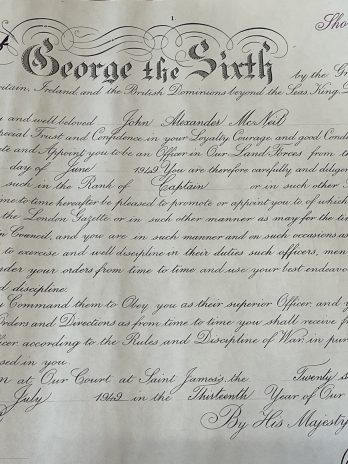 1.
Sho
George the Sixth
by the Gr
ritain, Ireland, and the British Dominions beyond the Seas, King D
y and well beloved John Alexander McNeil
pecial Trust and Confidence in your Loyalty, Courage, and good Condu
te and Appoint you to be an Officer in Our Land Forces from t
day of June 1949. You are therefore carefully and diligen
such in the Rank of Captain or in such other
me to time hereafter be pleased to promote or appoint you to, of which
the London Gazette, or in such other manner as may for the tim
n Council, and you are in such manner and on such occasions as
to exercise and well discipline in their duties such officers, men
der your orders from time to time and use your best endeavo
d discipline.
Command them to Obey you as their superior Officer, and y
Orders and Directions as from time to time you shall receive f
ficer, according to the Rules and Discipline of War, in pur
sed in you.
n at Our Court, at Saint James's, the Twenty s
July 1949 in the Thirteenth Year of Our
By His Majesty